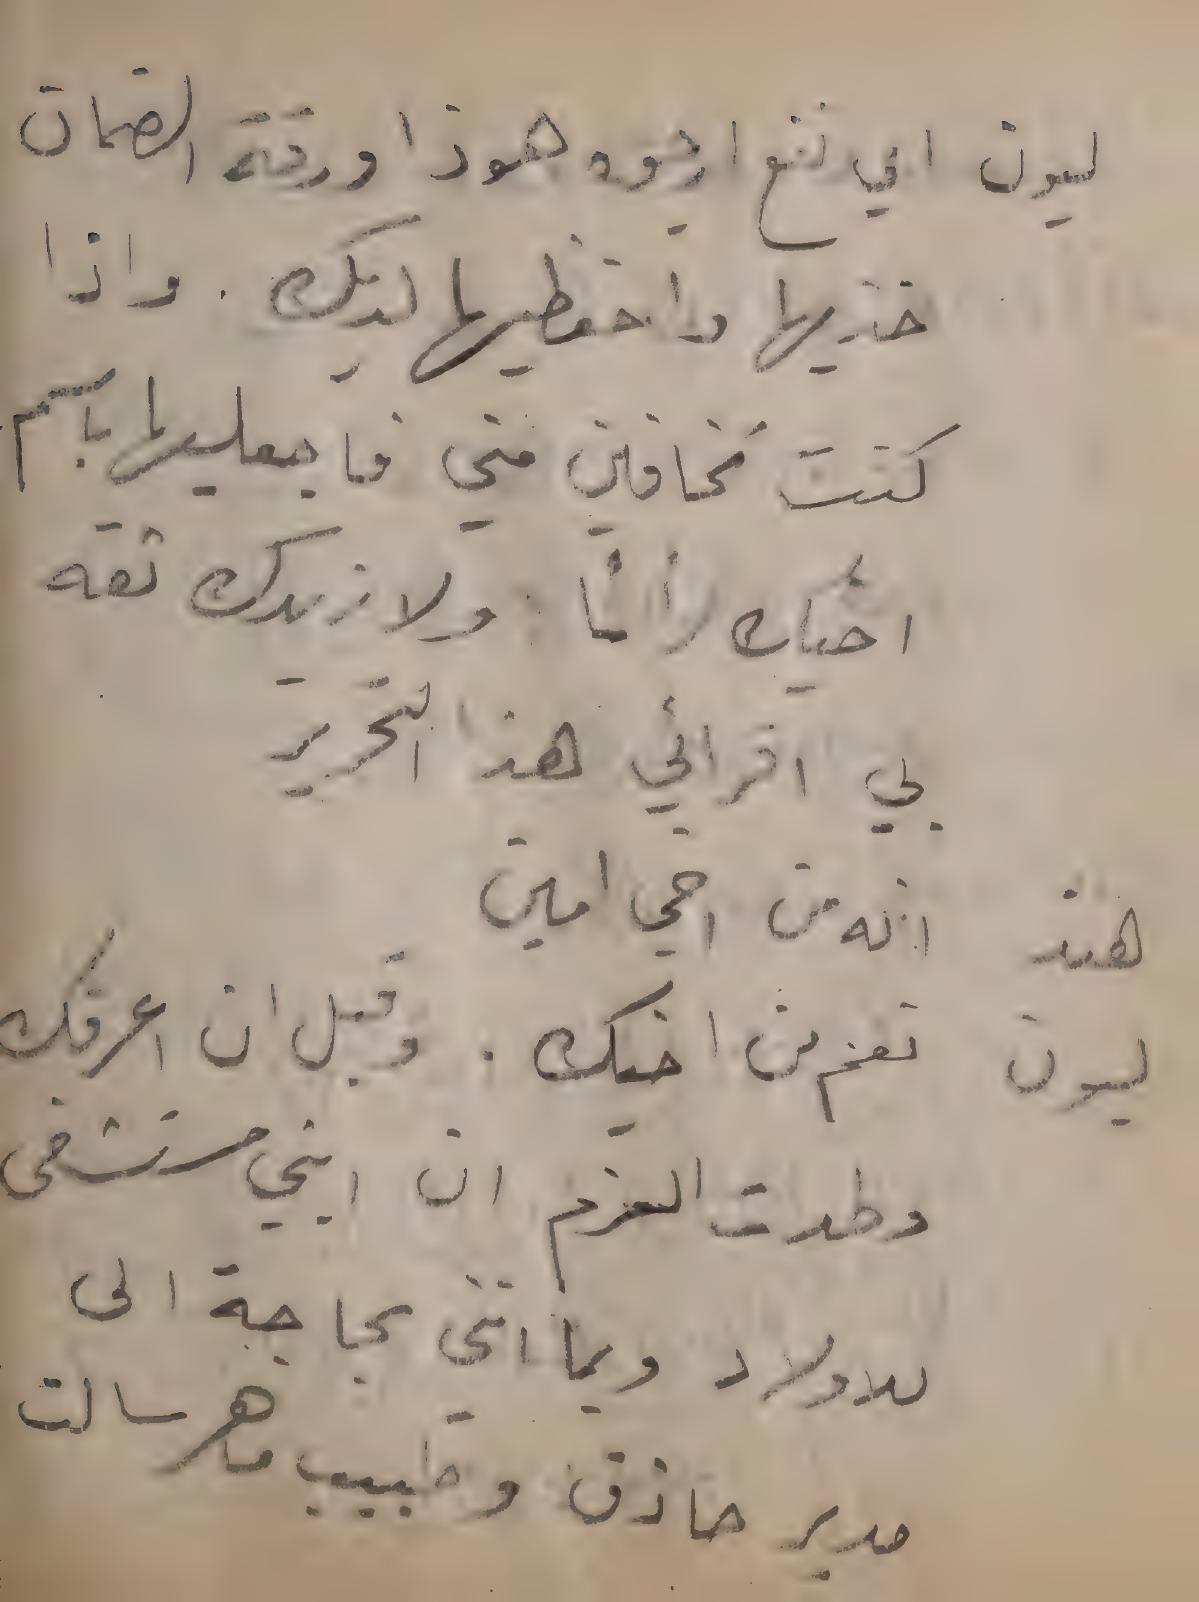 ليون اي نفع ارجوه هوذا ورقة الضمان
خذيها واحفظيها لديك . واذا
كنت تخافين مني فاجعليها باسم
ولازيدك ثقة
بي اقرائي هذا التحرير
هند انه من اخي امين
ليون نعم من اخيك . وقبل ان اعرفك
وطدت العزم ان ابني مستشفى
للاولاد وبما انني بحاجة الى
مدير حاذق وطبيب ماهر سالت